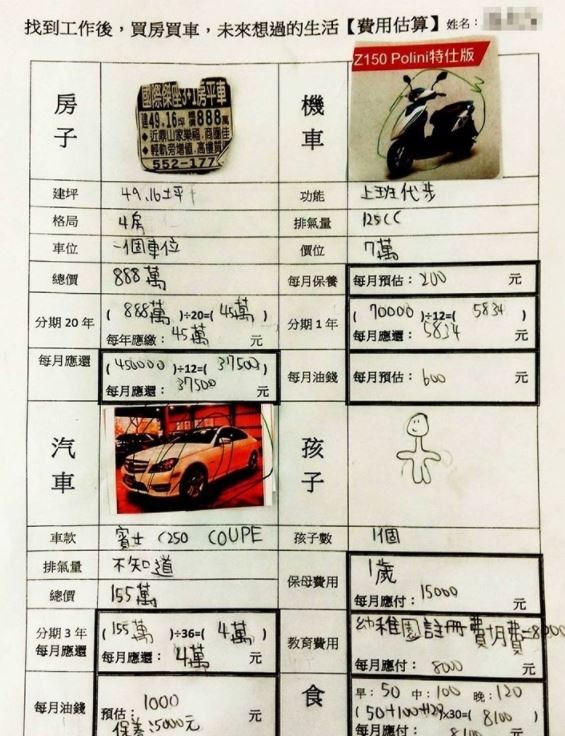 找到工作後，買房買車，未來想過的生活【費用估算】姓名：
房子
國際傑座3+1房平車
建49.16坪 總價888萬
◆近鼎山家樂福．商圈佳
◆輕軌旁增值．高樓質
552-177
機車
Z150 Polini特仕版
建坪 49.16坪
功能 上班代步
格局 4房
排氣量 125CC
車位 一個車位
價位 7萬
總價 888萬
每月保養 每月預估：200 元
分期 20 年
( 888萬 )÷20=( 45萬 )
每年應繳：45萬 元
分期 1 年
( 70000 )÷12=( 5834 )
每月應還：5834 元
每月應還
( 450000 )÷12=( 37500 )
每月應還：37500 元
每月油錢 每月預估：600 元
汽車
孩子
車款 賓士 C250 COUPE
孩子數 1個
排氣量 不知道
總價 155萬
保母費用
1歲
每月應付：15000 元
分期 3 年
每月應還
( 155萬 )÷36=( 4萬 )
每月應還：4萬 元
教育費用
幼稚園註冊費月費=8000
每月應付：8000 元
每月油錢
預估：1000 元
保養：5000元
食
早：50 中：100 晚：120
( 50+100+120 )×30=( 8100 )
每月應付：8100 元